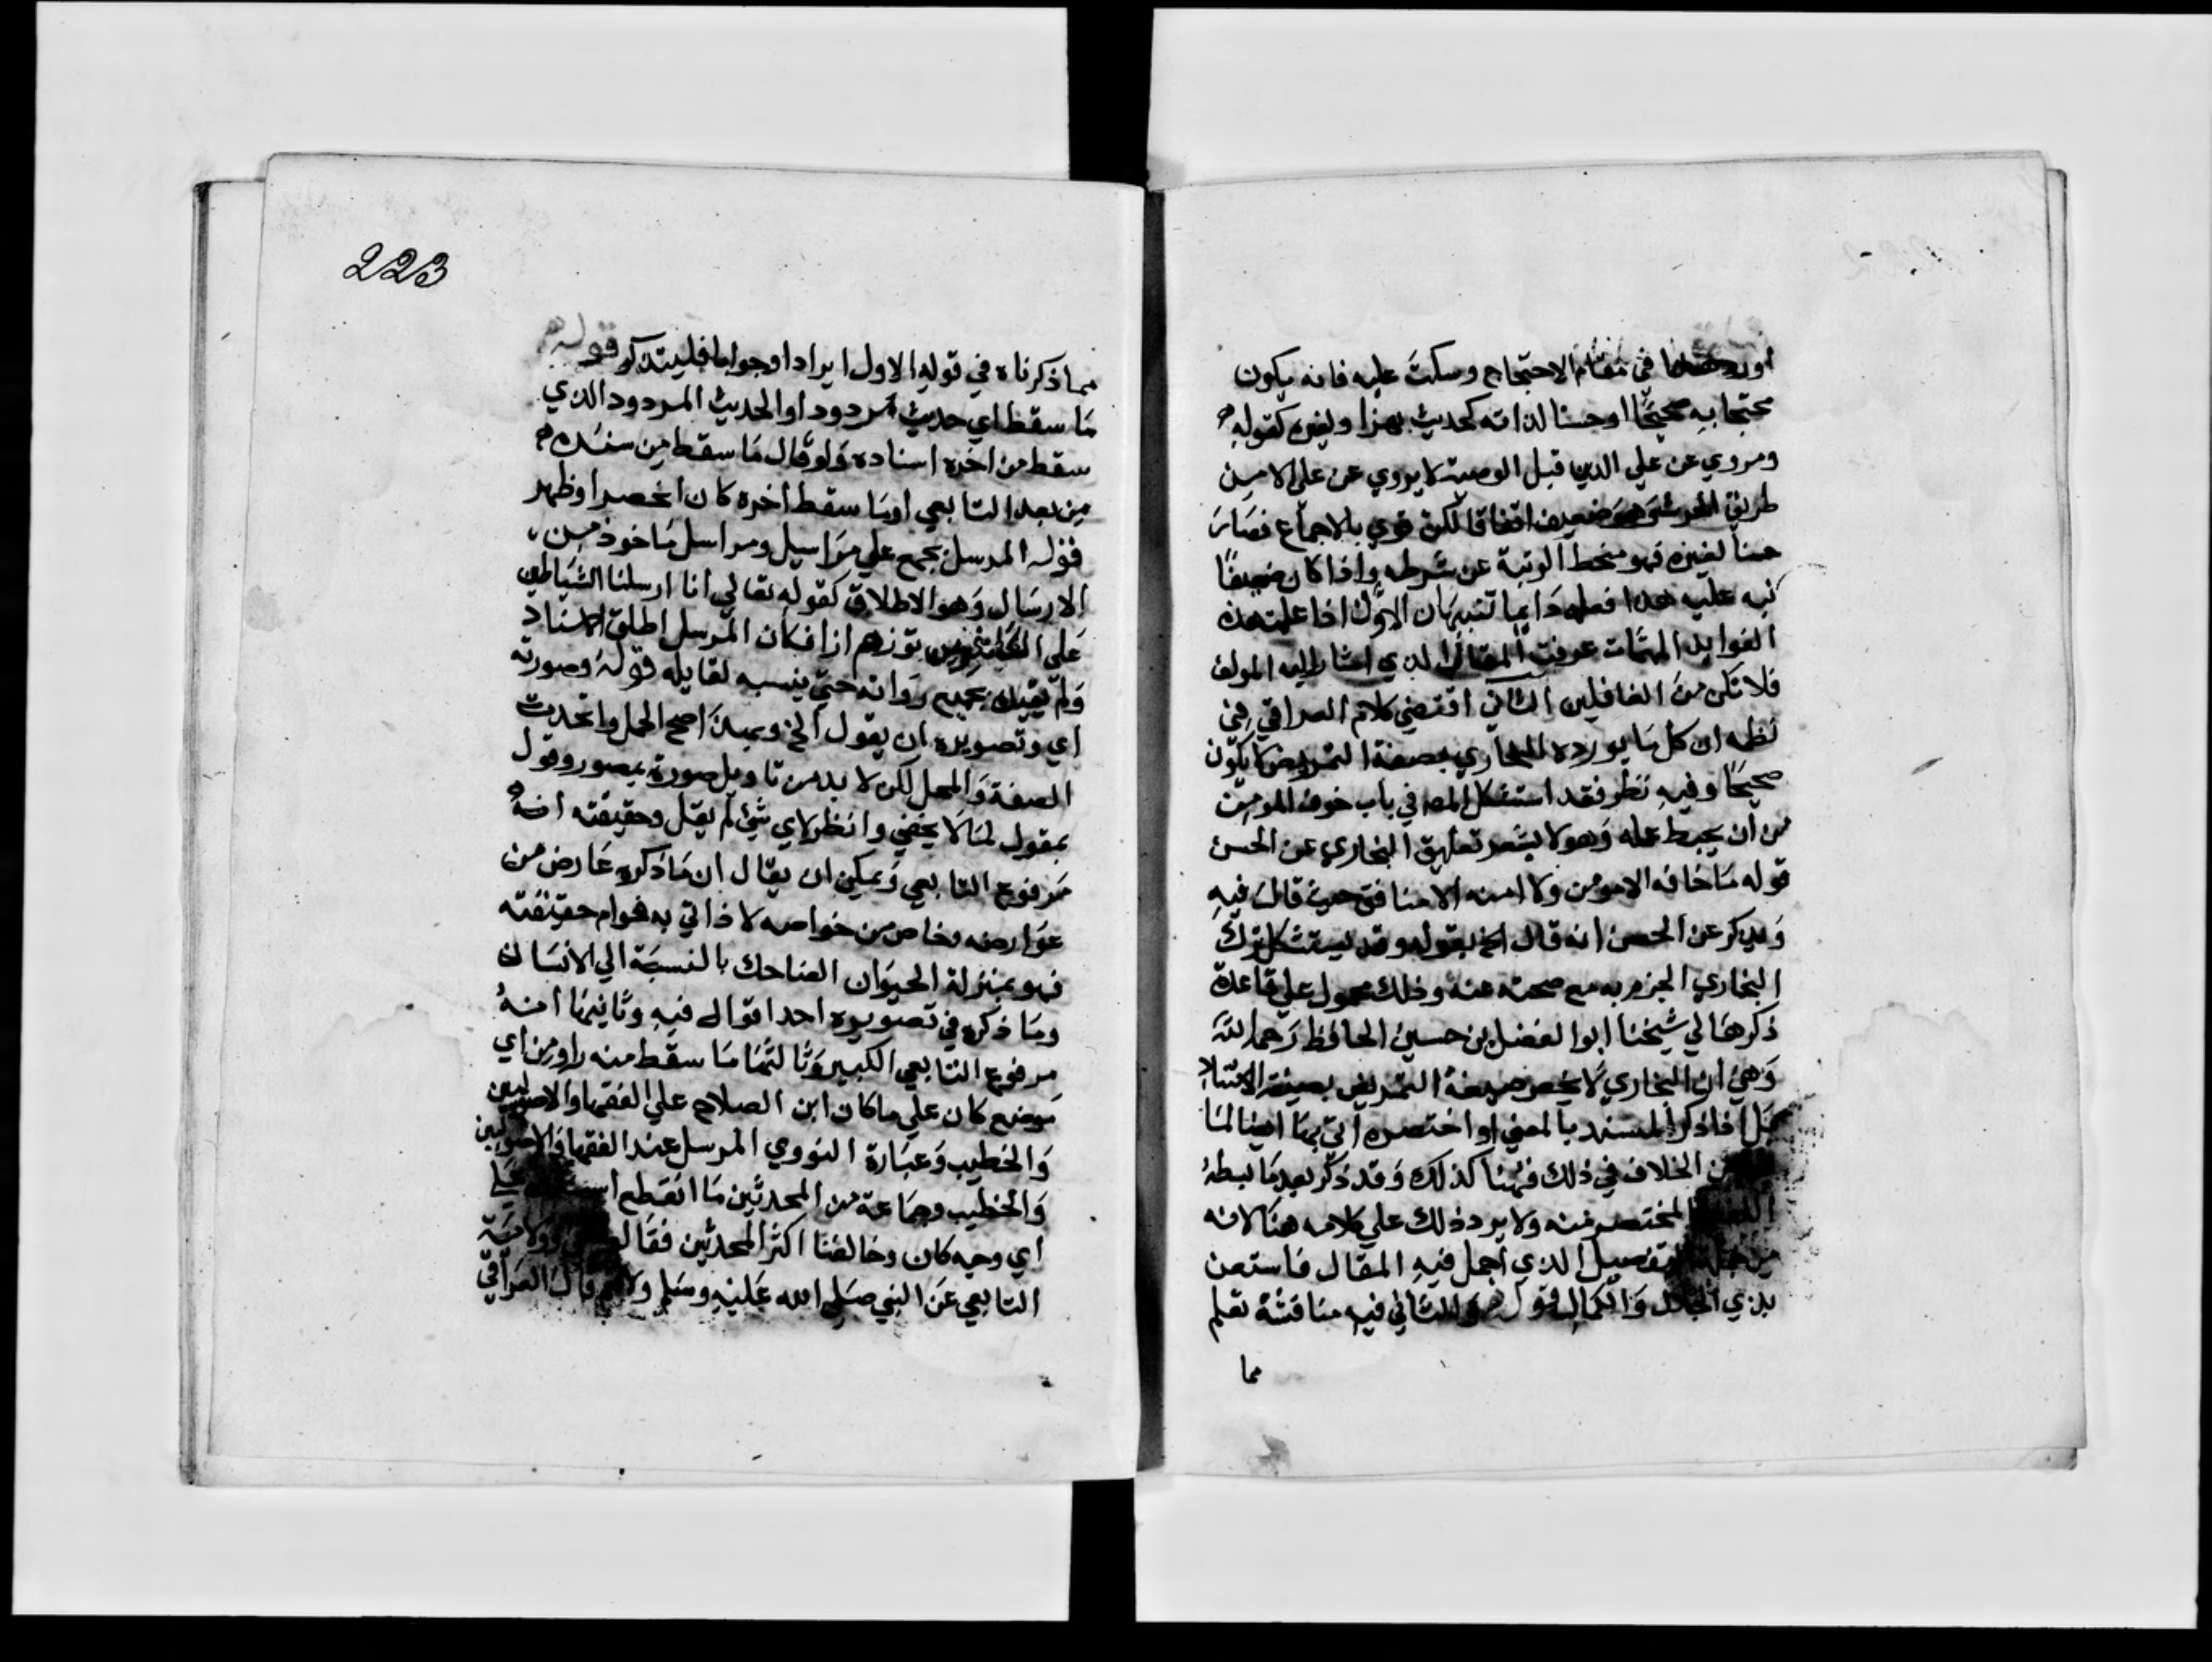 في مقام الاحتجاج وسكت عليه فانه يكون
محتجا به صحيحا او حسنا لذاته كحديث بهز او لغيره كقوله
ومروي عن علي الدين قبل الوصية لا يروي عن علي الا من
طريق ضعيف اتفاقا لكن قوي بالاجماع فصار
حسنا لغيره فهو منحط الرتبة عن شرطه واذا كان ضعيفا
نبه عليه هذا فعله دايما تنبيهان الاول اذا علمت هذه
الفوايد المهمات عرفت المقال الذي اشار اليه المولف
فلا تكن من الغافلين الثاني اقتضي كلام العراقي في
نظمه ان كل ما يورده البخاري بصيغة التمريض لا يكون
صحيحا وفيه نظر فقد استشكل المص في باب خوف المومن
من ان يحبط عمله وهو لا يشعر تعليق البخاري عن الحسن
قوله ما خافه الا مومن ولا امنه الا منافق حيث قال فيه
ويذكر عن الحسن انه قال الخ بقوله وقد يستشكل ترك
البخاري الجزم به مع صحته عنه وذلك محمول علي قاعدة
ذكرها لي شيخنا ابوا الفضل بن حسين الحافظ رحمه الله
وهي ان البخاري لا يخص صيغة التمريض بصيغة
بل اذا ذكر المسند بالمعني او اختصره اتي بها ايضا لما
من الخلاف في ذلك فهنا كذلك وقد ذكر بعد ما بسطه
المختصر منه ولا يرد ذلك علي كلامه هنا لانه
من التفصيل الذي اجمل فيه المقال فاستعن
بذي الجلال والكمال قوله والثاني فيه مناقشة تعلم
مما
223
مما ذكرناه في قوله الاول ايرادا وجوابا فليتذكر قوله
ما سقط اي حديث مردود او الحديث المردود الذي
سقط من اخره اسناده ولو قال ما سقط من سنده
من بعد التابعي او ما سقط اخره كان اخصر اوظهر
قوله المرسل يجمع علي مراسيل ومراسل ماخوذ من
الارسال وهو الاطلاق كقوله تعالي انا ارسلنا الشياطين
علي الكافرين تؤزهم ازا فكان المرسل اطلق الاسناد
ولم يقيده بجميع رواته حتي ينسبه لقايله قوله وصورته
اي وتصويره ان يقول الخ وبهذا صح الحمل واتحدت
الصفة والمحل لكن لا بد من تاويل صورة بمصور وقول
بمقول لما لا يخفي وانظر لاي شي لم يقل وحقيقته انه
مرفوع التابعي ويمكن ان يقال ان ما ذكره عارض من
عوارضه وخاص من خواصه لا ذاتي به قوام حقيقته
فهو بمنزلة الحيوان الضاحك بالنسبة الي الانسان
وما ذكره في تصويره احد اقوال فيه وثانيها انه
مرفوع التابعي الكبير وثالثها ما سقط منه راو من اي
موضع كان علي ما كان ابن الصلاح علي الفقها والاصوليين
والخطيب وعبارة النووي المرسل عند الفقها والاصوليين
والخطيب وجماعة من المحدثين ما انقطع علي
اي وجه كان وخالفنا اكثر المحدثين رواية
التابعي عن النبي صلي الله عليه وسلم قال العراقي